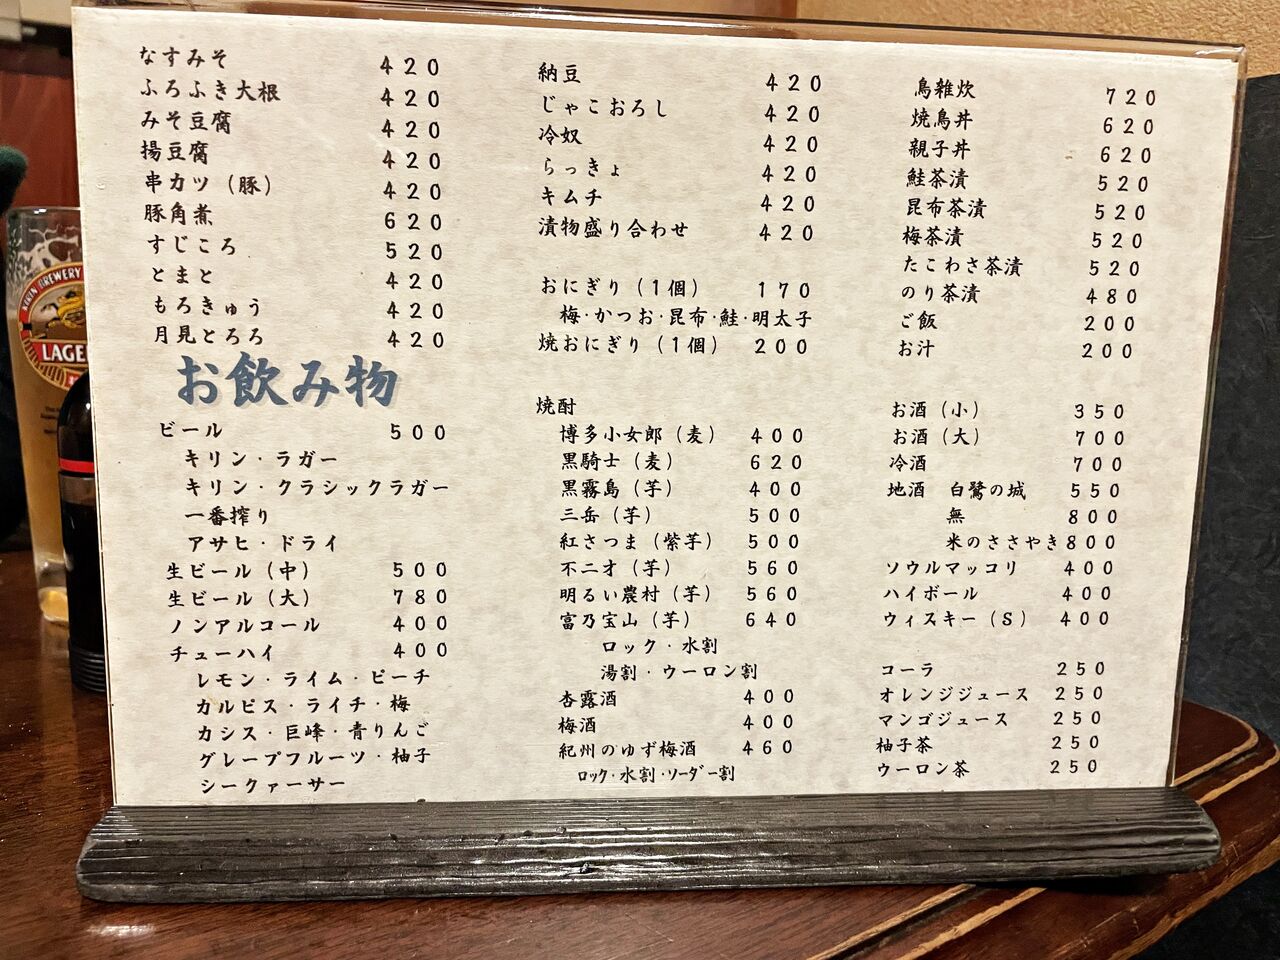 なすみそ 420
ふろふき大根 420
みそ豆腐 420
揚豆腐 420
串カツ（豚） 420
豚角煮 620
すじころ 520
とまと 420
もろきゅう 420
月見とろろ 420
お飲み物
ビール 500
キリン・ラガー
キリン・クラシックラガー
一番搾り
アサヒ・ドライ
生ビール（中） 500
生ビール（大） 780
ノンアルコール 400
チューハイ 400
レモン・ライム・ピーチ
カルピス・ライチ・梅
カシス・巨峰・青りんご
グレープフルーツ・柚子
シークァーサー
納豆 420
じゃこおろし 420
冷奴 420
らっきょ 420
キムチ 420
漬物盛り合わせ 420
おにぎり（1個） 170
梅・かつお・昆布・鮭・明太子
焼おにぎり（1個） 200
焼酎
博多小女郎（麦） 400
黒騎士（麦） 620
黒霧島（芋） 400
三岳（芋） 500
紅さつま（紫芋） 500
不二才（芋） 560
明るい農村（芋） 560
富乃宝山（芋） 640
ロック・水割
湯割・ウーロン割
杏露酒 400
梅酒 400
紀州のゆず梅酒 460
ロック・水割・ソーダー割
鳥雑炊 720
焼鳥丼 620
親子丼 620
鮭茶漬 520
昆布茶漬 520
梅茶漬 520
たこわさ茶漬 520
のり茶漬 480
ご飯 200
お汁 200
お酒（小） 350
お酒（大） 700
冷酒 700
地酒 白鷺の城 550
無 800
米のささやき 800
ソウルマッコリ 400
ハイボール 400
ウィスキー（S） 400
コーラ 250
オレンジジュース 250
マンゴジュース 250
柚子茶 250
ウーロン茶 250
KIRIN BREWERY
LAGE